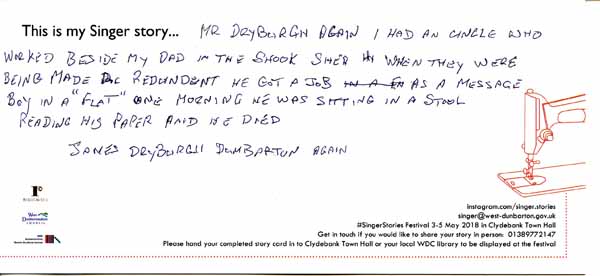 This is my Singer story... MR DRYBURGH AGAIN I HAD AN UNCLE WHO
WORKED BESIDE MY DAD IN THE SHOOK SHED WHEN THEY WERE
BEING MADE REDUNDENT HE GOT A JOB AS A MESSAGE
BOY IN A "FLAT" ONE MORNING HE WAS SITTING IN A STOOL
READING HIS PAPER AND HE DIED
JAMES DRYBURGH DUMBARTON AGAIN
instagram.com/singer.stories
singer@west-dunbarton.gov.uk
#SingerStories Festival 3-5 May 2018 in Clydebank Town Hall
Get in touch if you would like to share your story in person: 01389772147
Please hand your completed story card in to Clydebank Town Hall or your local WDC library to be displayed at the festival